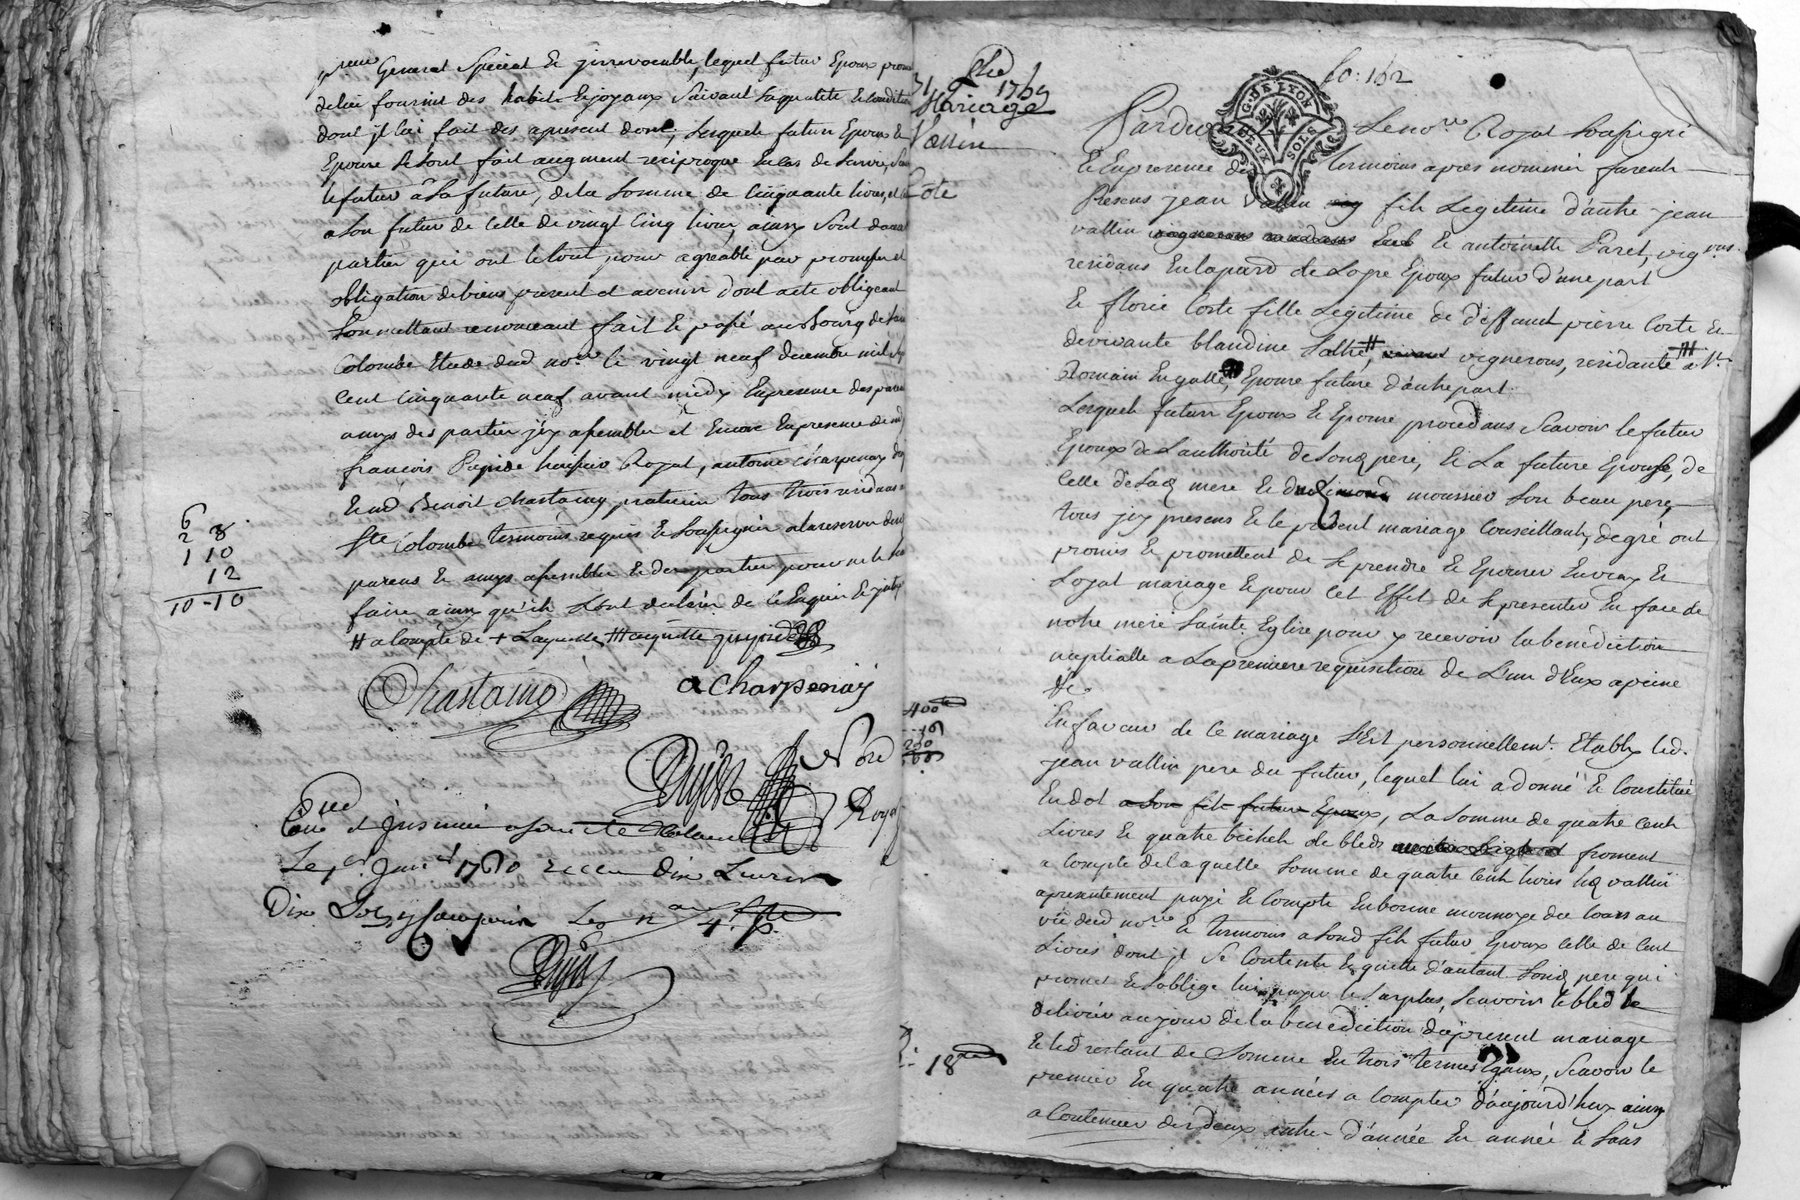 general special et jrrevocable, lequel futur Epoux
de lui fournir des habits & joyaux suivant sa qualité & condition
dont jl lui fait des apresent don, lesquels futurs Epoux &
Epouse se sont fait augment reciproque En cas de survie,
le futur a sa future, de la somme de Cinquante livres, et
a son futur de celle de vingt Cinq livres, ainsy sont
parties qui ont le tout pour agreable par promesse et
obligation de biens present et avenir dont acte obligeant
soumettant renonceant fait & passé au Bourg de
Colombe Etude dud nore le vingt neuf decembre mil
Cent Cinquante neuf avant midy En presence des
amys des parties jcy assemblés et Encore En presence de
françois huissier Royal, antoine charpenay
& sd Benoit Chastaing praticien tous trois residans
Ste Colombe temoins requis & soussignés a la reserve
parens & amys assemblés & des parties pour ne le
faire ainsy qu'ils l'ont declaré de ce Enquis &
# a Compte de + Laquelle ### acquitte
6
2 8
1 10
12
10 - 10
Chastaing
a Charpenay
Nore
Royal
Coné
Le 1er Janer 1760 receu dix Livres
Dix Sols
31 1759
Mariage
Vallin
Coste
400
200
18
fo: 162
G. DE LYON
DEUX SOLS
Pardevant Le nore Royal soussigné
& En presence des temoins apres nommés furent
Presens jean vallin fils Legitime d'autre jean
vallin & antoinette Paret, vignons
residans En la paroisse de Loyre Epoux futur d'une part
& florie Coste fille Legitime de deffunt pierre Coste &
de vivante blandine # vignerons, residante ### a St
Romain En galle, Epouse future d'autre part.
Lesquels futurs Epoux & Epouse procedans Scavoir le futur
Epoux de L'authorité de sond pere, & La future Epouse, de
Celle de sad mere & moussier son beau pere,
tous jcy presens & le present mariage Conseillants, de gré ont
promis & promettent de se prendre & Epouser En vray &
Loyal mariage & pour cet Effet de se presenter En face de
notre mere Sainte Eglise pour y recevoir la benediction
nuptialle a La premiere requisition de L'un d'Eux a peine
&c.
En faveur de ce mariage s'Est personnellemt. Etably led.
jean vallin pere du futur, lequel lui a donné & Constitué
En dot a son fils futur Epoux, La somme de quatre Cent
Livres & quatre bichets de bled froment
a Compte de laquelle somme de quatre Cent livres led vallin
a presentement payé & Compté En bonne monnoye du Cours au
vû dud nore & temoins a sond fils futur Epoux celle de Cent
Livres dont jl se Contente & quitte d'autant sond pere qui
promet & s'oblige lui payer le surplus, scavoir le bled le
delivrer au jour de la benediction du present mariage
& led restant de Somme En trois termes Egaux, Scavoir le
premier En quatre années a Compter d'aujourd'huy ainsy
a Continuer des deux autres d'année En année & sans